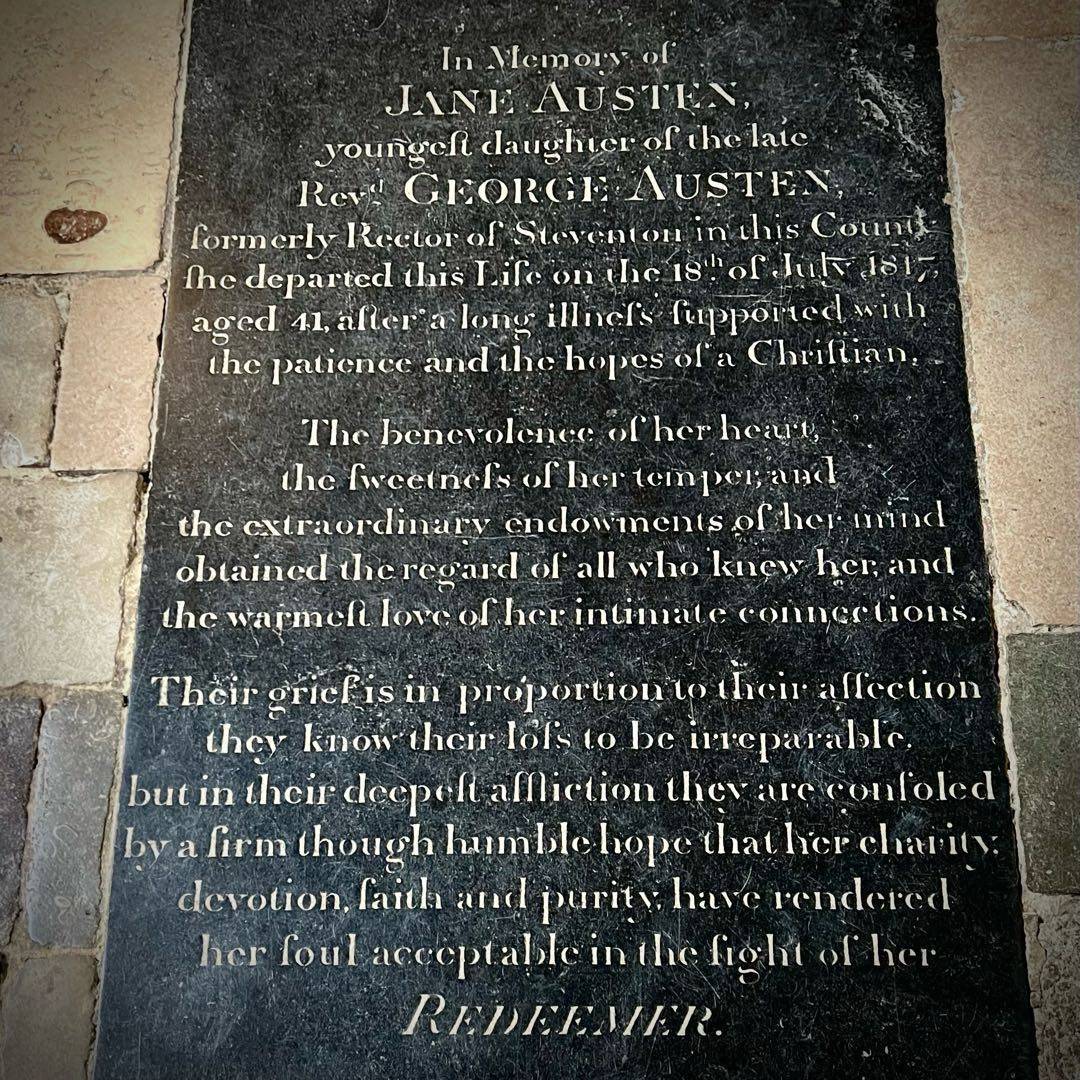 In Memory of
JANE AUSTEN,
youngeſt daughter of the late
Revᵈ GEORGE AUSTEN,
formerly Rector of Steventon in this County
ſhe departed this Life on the 18ᵗʰ of July 1817,
aged 41, after a long illneſs ſupported with
the patience and the hopes of a Chriſtian.
The benevolence of her heart,
the ſweetneſs of her temper, and
the extraordinary endowments of her mind
obtained the regard of all who knew her, and
the warmeſt love of her intimate connections.
Their grief is in proportion to their affection
they know their loſs to be irreparable,
but in their deepeſt affliction they are conſoled
by a firm though humble hope that her charity,
devotion, faith and purity, have rendered
her ſoul acceptable in the ſight of her
REDEEMER.